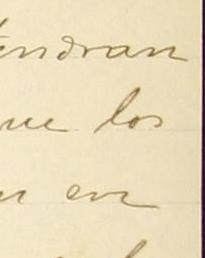 tendran
que los
n en